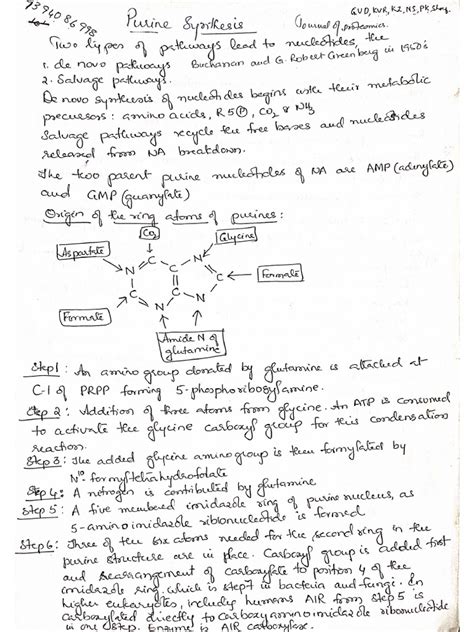 9394086998
Purine Synthesis
GVD, KVR, KZ, NS, PK,
Journal of proteomics.
Two types of pathways lead to nucleotides, the
1. de novo pathways Buchanan and G. Robert Greenberg in 1950's
2. Salvage pathways.
De novo synthesis of nucleotides begins with their metabolic
precursors: amino acids, R5P, CO2 & NH3
Salvage pathways recycle the free bases and nucleosides
released from NA breakdown.
The two parent purine nucleotides of NA are AMP (adenylate)
and GMP (guanylate)
Origin of the ring atoms of purines:
CO2
Aspartate
Glycine
N
C
C
N
C
Formate
C
C
N
N
Formate
Amide N of
glutamine
Step 1: An amino group donated by glutamine is attached at
C-1 of PRPP forming 5-phosphoribosylamine.
Step 2: Addition of three atoms from glycine. An ATP is consumed
to activate the glycine carboxyl group for this condensation
reaction.
Step 3: The added glycine amino group is then formylated by
N10-formyltetrahydrofolate
Step 4: A nitrogen is contributed by glutamine
Step 5: A five membered imidazole ring of purine nucleus, as
5-aminoimidazole ribonucleotide is formed
Step 6: Three of the six atoms needed for the second ring in the
purine structure are in place. Carboxyl group is added first
and rearrangement of carboxylate to position 4 of the
imidazole ring which is step 7 in bacteria and fungi. In
higher eukaryotes, including humans AIR from step 5 is
carboxylated directly to carboxyaminoimidazole ribonucleotide
in one step. Enzyme is AIR carboxylase.